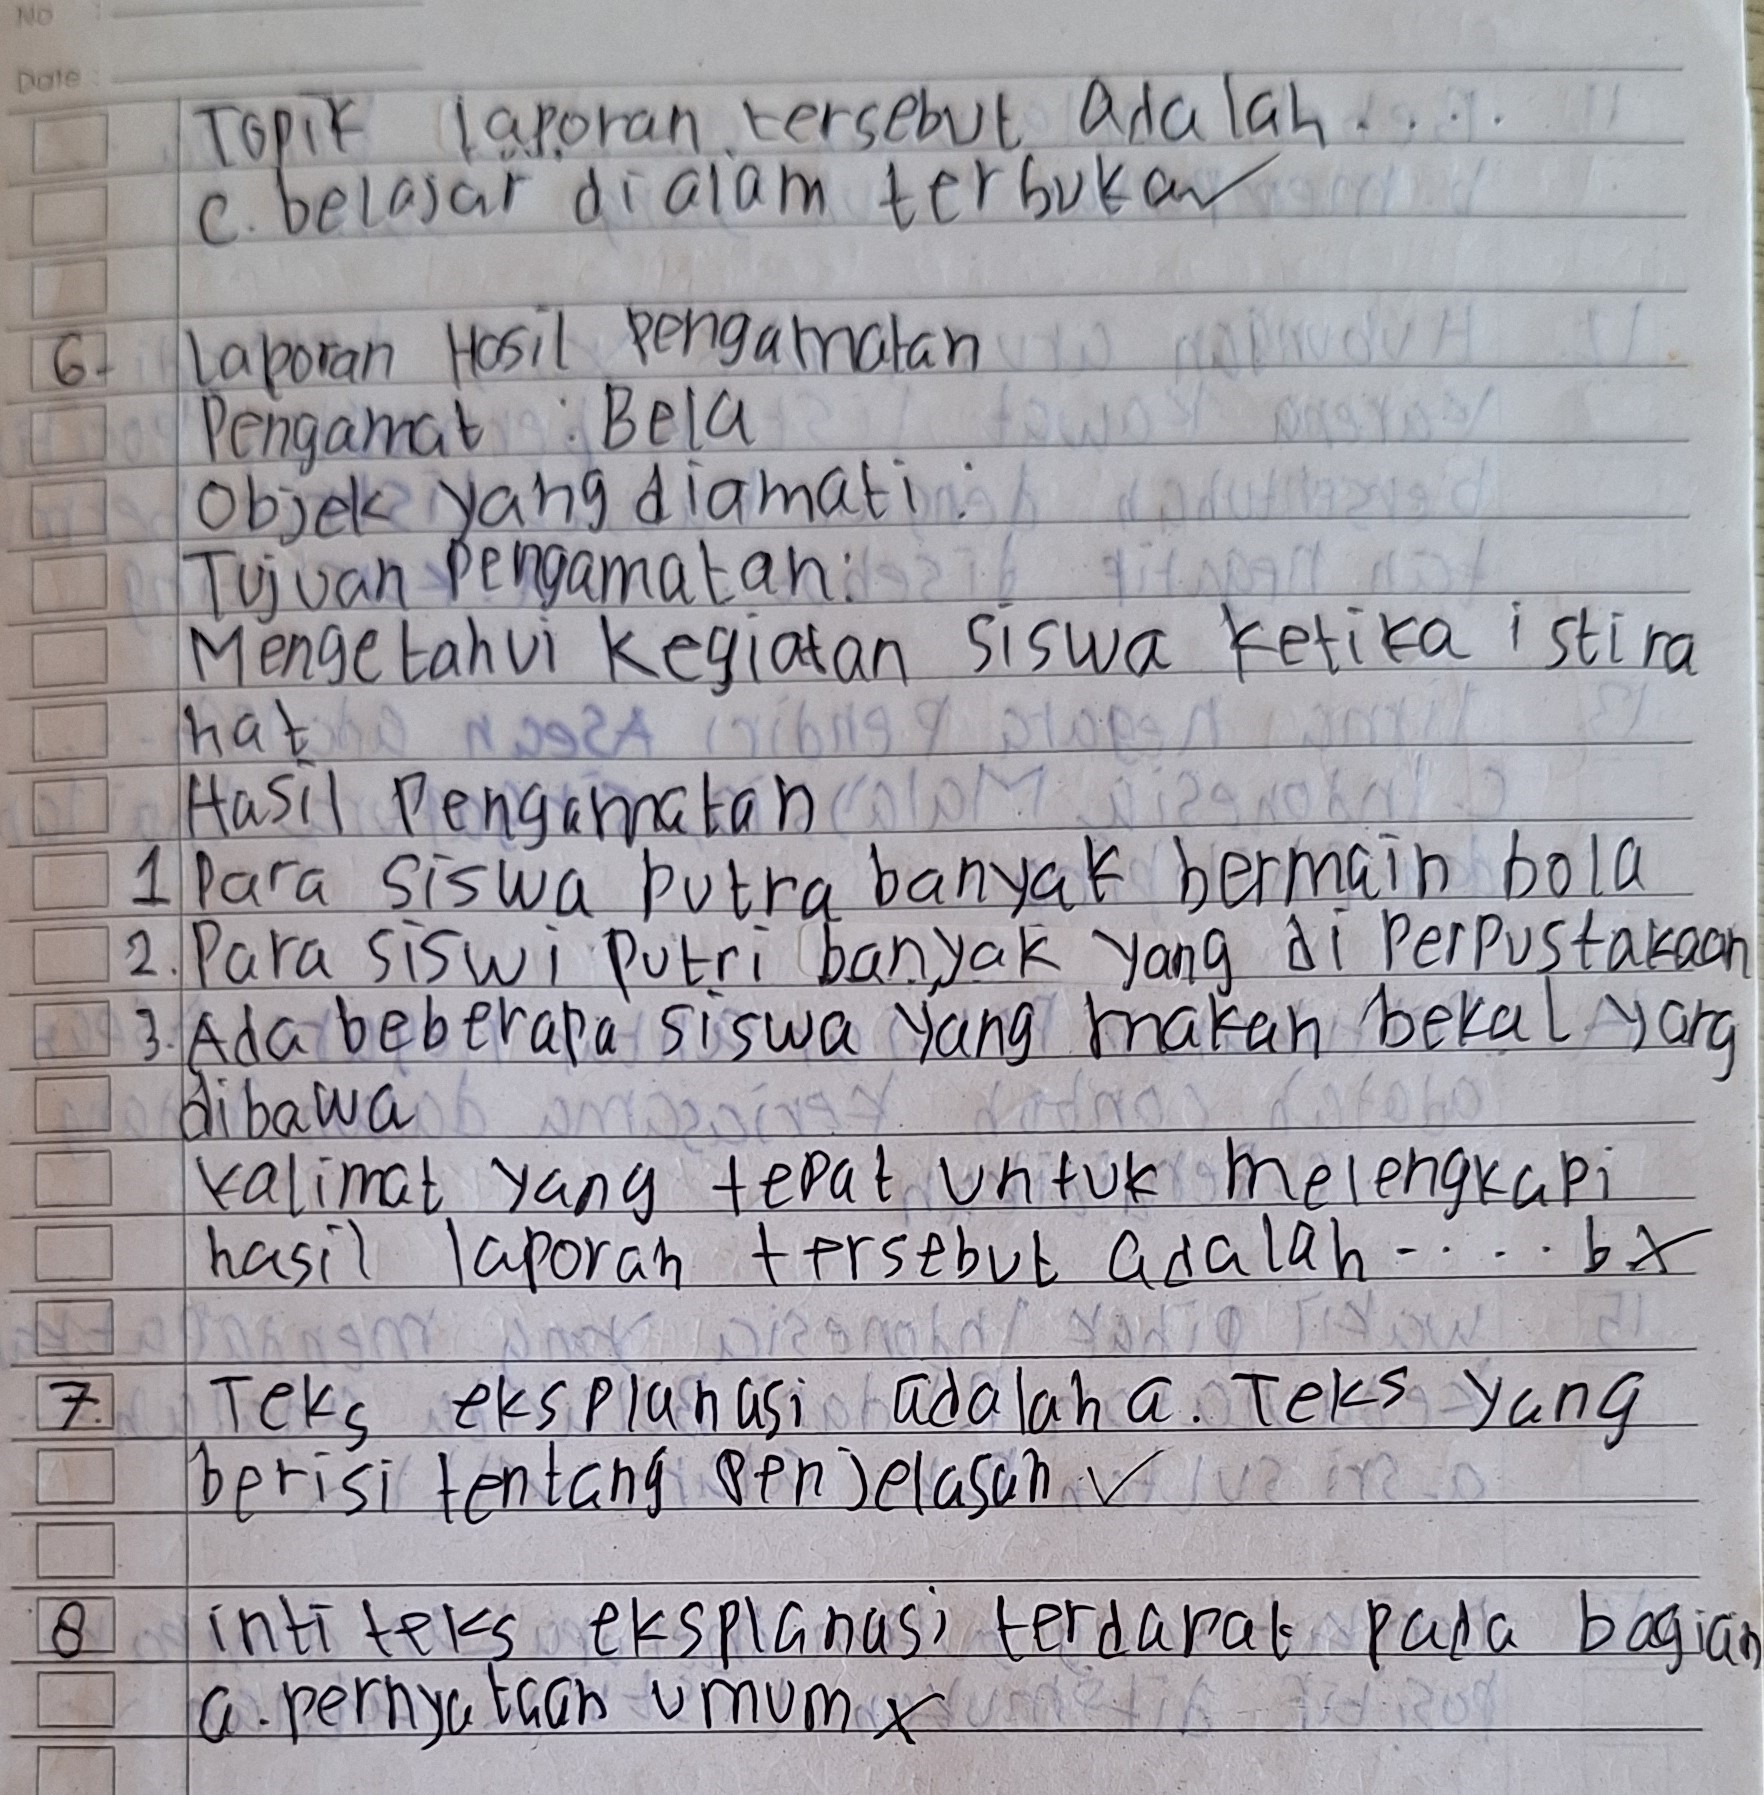 No :
Date :
Topik laporan tersebut adalah....
c. belajar dialam terbuka ✓
6. Laporan Hasil Pengamatan
Pengamat : Bela
Objek yang diamati :
Tujuan Pengamatan :
Mengetahui kegiatan siswa ketika istira
hat
Hasil Pengamatan
1 Para siswa putra banyak bermain bola
2. Para siswi putri banyak yang di Perpustakaan
3. Ada beberapa siswa yang makan bekal yang
dibawa
kalimat yang tepat untuk melengkapi
hasil laporan tersebut adalah ..... b x
7. Teks eksplanasi adalah a. Teks yang
berisi tentang Penjelasan ✓
8 inti teks eksplanasi terdapat pada bagian
a. pernyataan umum x